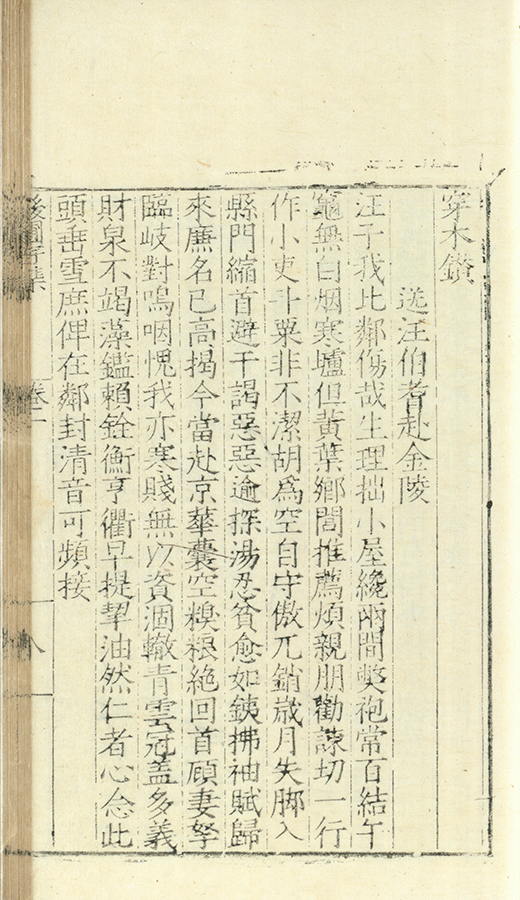 穿木鑽
送汪伯耆赴金陵
汪子我比鄰傷哉生理拙小屋纔兩間獘袍常百結午
竈無白烟寒壚但黃葉鄉閭推薦煩親朋勸諫切一行
作小吏斗粟非不潔胡爲空自守傲兀銷歲月失脚入
縣門縮首避干謁惡惡逾探湯忍貧愈如銕拂袖賦歸
來廉名已高揭今當赴京華囊空糗粮絕回首顧妻孥
臨岐對嗚咽愧我亦寒賤無以資涸轍青雲冠盖多義
財泉不竭藻鑑賴銓衡亨衢早提挈油然仁者心念此
頭垂雪庶俾在鄰封清音可頻接
後圃存集
卷二
八